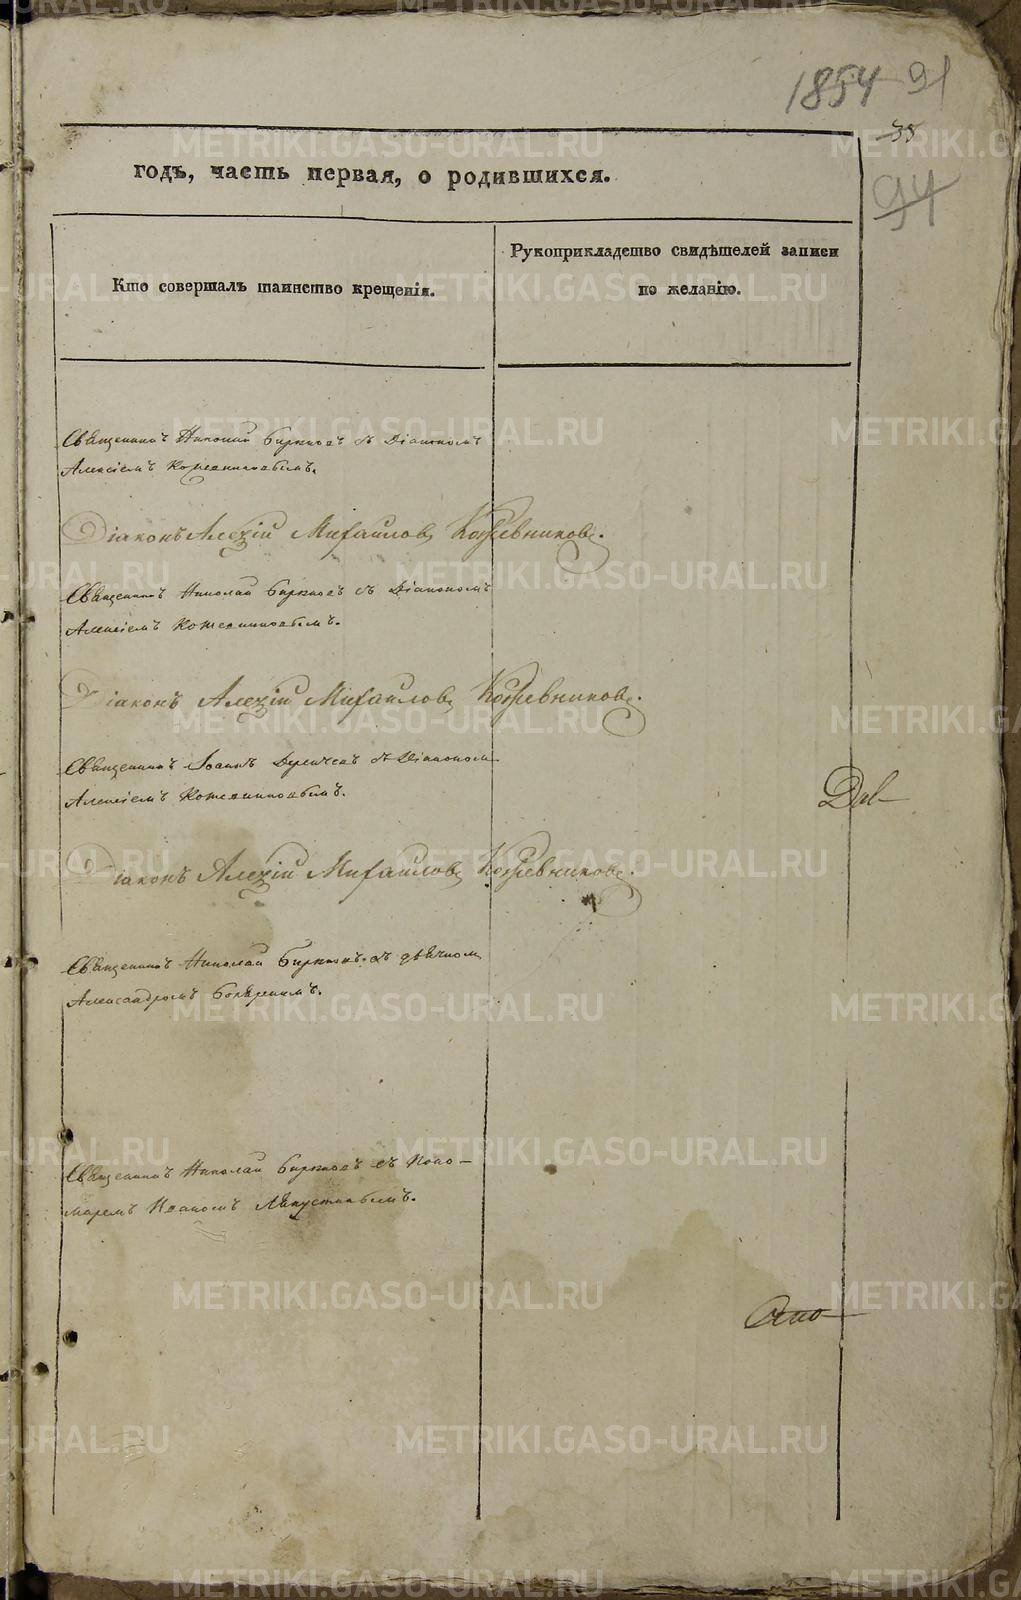 1854 91
35
94
годъ, часть первая, о родившихся.
Кто совершалъ таинство крещенія.
Рукоприкладство свидѣтелей записи
по желанію.
Священникъ Николай Бирюковъ съ Діакономъ
Алексіемъ Кожевниковымъ.
Діаконъ Алексій Михайловъ Кожевниковъ.
Священникъ Николай Бирюковъ съ Діакономъ
Алексіемъ Кожевниковымъ.
Діаконъ Алексій Михайловъ Кожевниковъ.
Священникъ Іоаннъ съ Діакономъ
Алексіемъ Кожевниковымъ.
Діаконъ Алексій Михайловъ Кожевниковъ.
Священникъ Николай Бирюковъ съ дьячкомъ
Александромъ
Священникъ Николай Бирюковъ съ Поно-
маремъ Иваномъ
METRIKI.GASO-URAL.RU